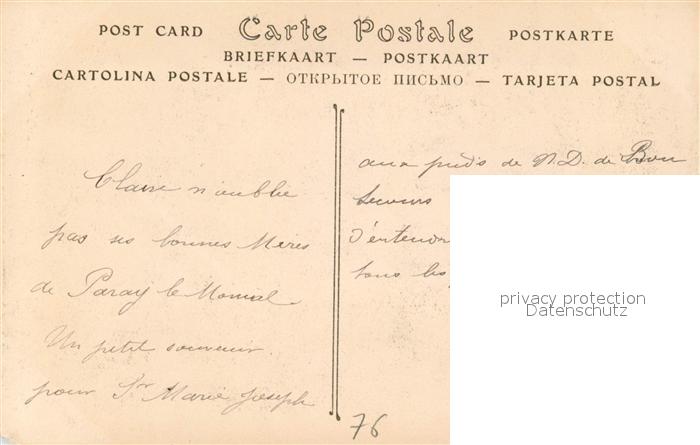 POST CARD Carte Postale POSTKARTE
BRIEFKAART — POSTKAART
CARTOLINA POSTALE — ОТКРЫТОЕ ПИСЬМО — TARJETA POSTAL
Claire n'oublie
pas ses bonnes Mères
de Paray le Monial
Un petit souvenir
pour Sr Marie Joseph
aux pieds de N.D. de Bon
Secours
d'entendr
tous les
privacy protection
Datenschutz
76